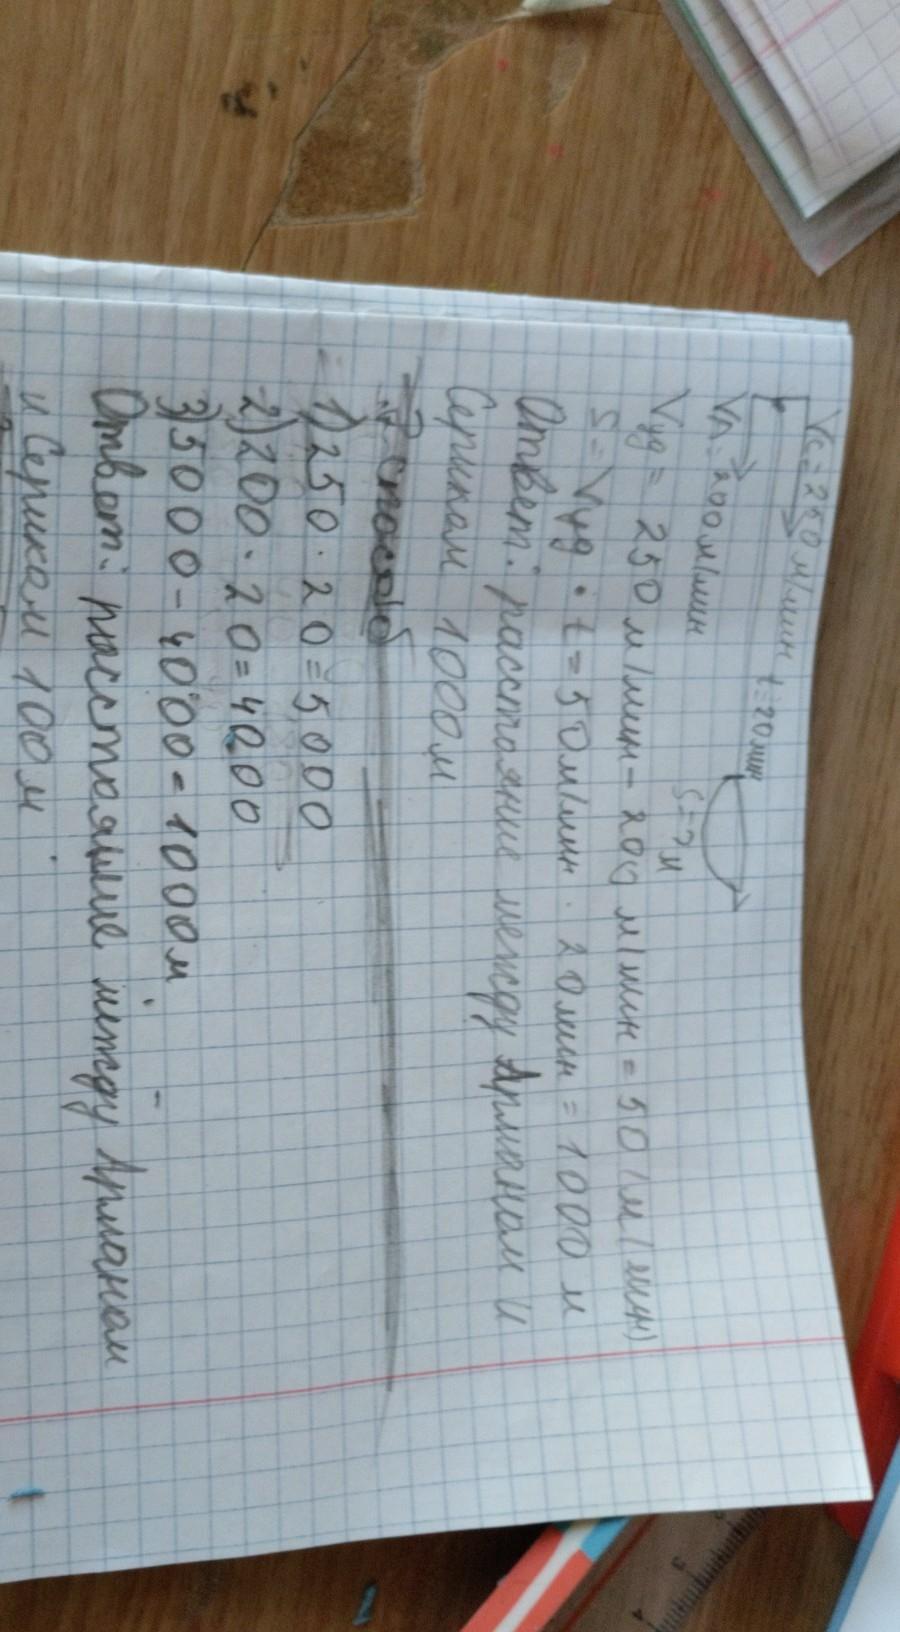 Vс = 250 м/мин t = 20 мин
Vа = 200 м/мин S = ? м
Vуд = 250 м/мин - 200 м/мин = 50 (м/мин)
S = Vуд · t = 50 м/мин · 20 мин = 1000 м
Ответ: расстояние между Арманом и
Сериком 1000 м
способ
1) 250 · 20 = 5000
2) 200 · 20 = 4000
3) 5000 - 4000 = 1000 м
Ответ: расстояние между Арманом
и Сериком 100 м